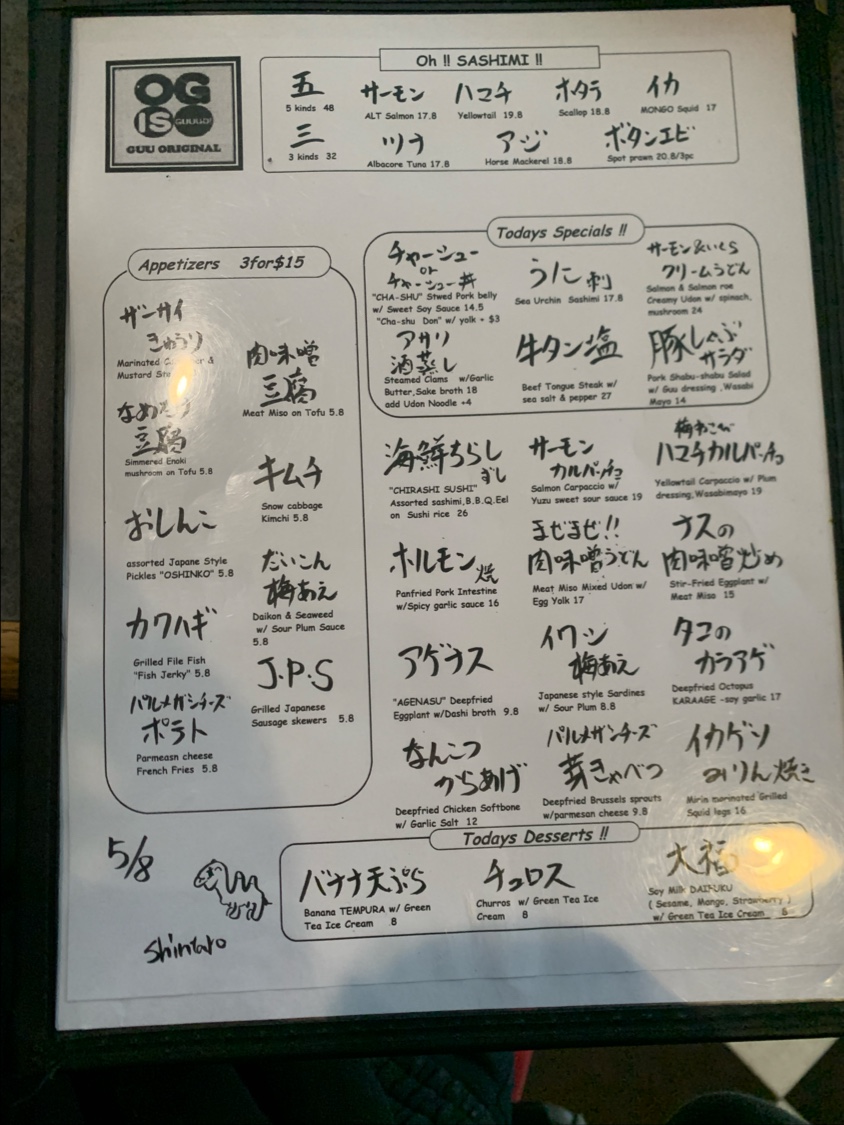 OG
IS GUUOD!
GUU ORIGINAL
Oh !! SASHIMI !!
五
5 kinds 48
サーモン
ALT Salmon 17.8
ハマチ
Yellowtail 19.8
ホタテ
Scallop 18.8
イカ
MONGO Squid 17
三
3 kinds 32
ツナ
Albacore Tuna 17.8
アジ
Horse Mackerel 18.8
ボタンエビ
Spot prawn 20.8/3pc
Appetizers 3for$15
ザーサイ
きゅうり
Marinated &
Mustard
なめたけ
豆腐
Simmered Enoki
mushroom on Tofu 5.8
おしんこ
assorted Japane Style
Pickles "OSHINKO" 5.8
カワハギ
Grilled File Fish
"Fish Jerky" 5.8
パルメザンチーズ
ポテト
Parmeasn cheese
French Fries 5.8
肉味噌
豆腐
Meat Miso on Tofu 5.8
キムチ
Snow cabbage
Kimchi 5.8
だいこん
梅あえ
Daikon & Seaweed
w/ Sour Plum Sauce
5.8
J.P.S
Grilled Japanese
Sausage skewers 5.8
Todays Specials !!
チャーシュー
or
チャーシュー丼
"CHA-SHU" Stwed Pork belly
w/ Sweet Soy Sauce 14.5
"Cha-shu Don" w/ yolk + $3
うに刺
Sea Urchin Sashimi 17.8
サーモン&いくら
クリームうどん
Salmon & Salmon roe
Creamy Udon w/ spinach,
mushroom 24
アサリ
酒蒸し
Steamed Clams w/Garlic
Butter,Sake broth 18
add Udon Noodle +4
牛タン塩
Beef Tongue Steak w/
sea salt & pepper 27
豚しゃぶ
サラダ
Pork Shabu-shabu Salad
w/ Guu dressing ,Wasabi
Mayo 14
海鮮ちらし
ずし
"CHIRASHI SUSHI"
Assorted sashimi,B.B.Q.Eel
on Sushi rice 26
サーモン
カルパッチョ
Salmon Carpaccio w/
Yuzu sweet sour sauce 19
梅わさび
ハマチカルパッチョ
Yellowtail Carpaccio w/ Plum
dressing,Wasabimayo 19
ホルモン焼
Panfried Pork Intestine
w/Spicy garlic sauce 16
まぜまぜ!!
肉味噌うどん
Meat Miso Mixed Udon w/
Egg Yolk 17
ナスの
肉味噌炒め
Stir-Fried Eggplant w/
Meat Miso 15
アゲナス
"AGENASU" Deepfried
Eggplant w/Dashi broth 9.8
イワシ
梅あえ
Japanese style Sardines
w/ Sour Plum 8.8
タコの
カラアゲ
Deepfried Octopus
KARAAGE -soy garlic 17
なんこつ
からあげ
Deepfried Chicken Softbone
w/ Garlic Salt 12
パルメザンチーズ
芽きゃべつ
Deepfried Brussels sprouts
w/parmesan cheese 9.8
イカゲソ
みりん焼き
Mirin marinated Grilled
Squid legs 16
Todays Desserts !!
バナナ天ぷら
Banana TEMPURA w/ Green
Tea Ice Cream 8
チュロス
Churros w/ Green Tea Ice
Cream 8
大福
Soy Milk DAIFUKU
( Sesame, Mango, Strawberry )
w/ Green Tea Ice Cream
5/8
Shintaro